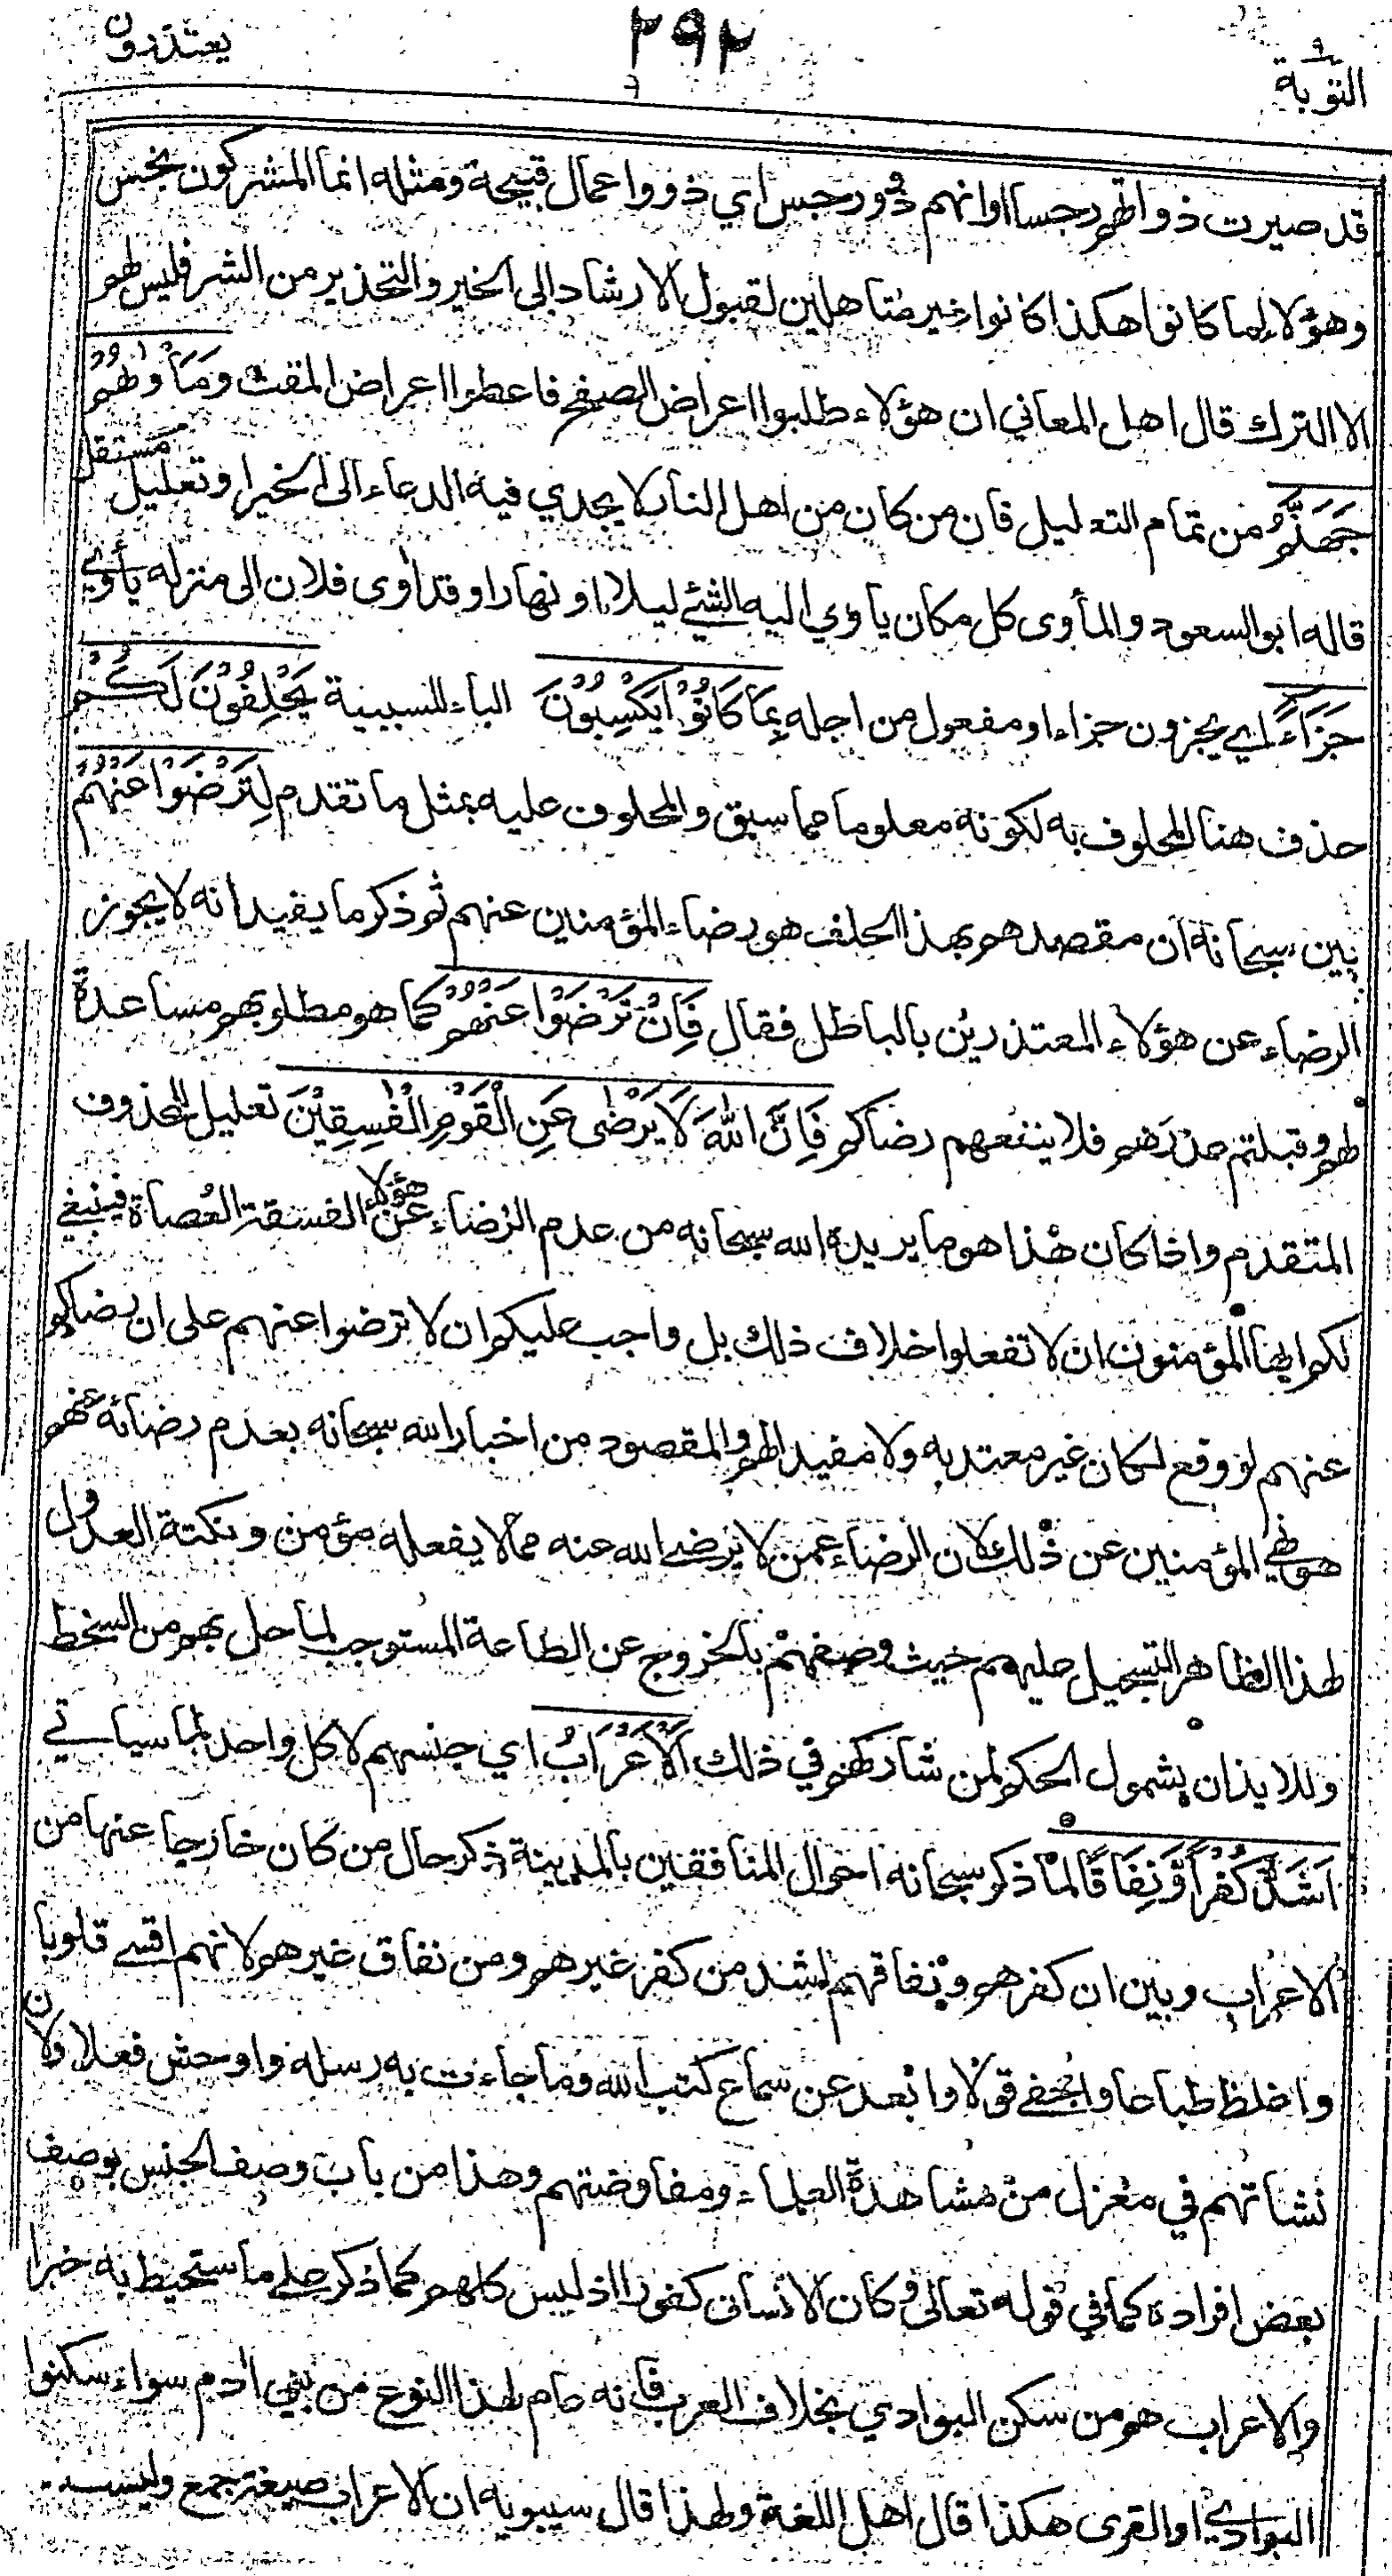 التوبة ٩
٢٩٢
يعتذرون
قد صيرت ذواتهم رجسا او انهم ذوو رجس اي ذووا عمال قبيحة ومثله انما المشركون نجس
وهؤلاء لما كانوا هكذا كانوا غير متاهلين لقبول الارشاد الى الخير والتحذير من الشر فليس لهم
الا الترك قال اهل المعاني ان هؤلاء طلبوا اعراض الصفح فاعطوا اعراض المقت وَمَأْوٰىهُمْ
جَهَنَّمُ من تمام التعليل فان من كان من اهل النار لا يجدي فيه الدعاء الى الخير او تعليل مستقل
قاله ابو السعود والمأوى كل مكان ياوي اليه الشيئ ليلا او نهارا وقد اوى فلان الى منزله يأوي
جَزَآءً اي يجزون جزاء او مفعول من اجله بِمَا كَانُوْا يَكْسِبُوْنَ الباء للسببية يَحْلِفُوْنَ لَكُمْ
حذف هنا المحلوف به لكونه معلوما مما سبق والمحلوف عليه بمثل ما تقدم لِتَرْضَوْا عَنْهُمْ
بين سبحانه ان مقصدهم بهذا الحلف هو رضاء المؤمنين عنهم ثم ذكر ما يفيد انه لا يجوز
الرضاء عن هؤلاء المعتذرين بالباطل فقال فَاِنْ تَرْضَوْا عَنْهُمْ كما هو مطلوبهم مساعدة
لهم وقبلتم عذرهم فلا ينفعهم رضاكم فَاِنَّ اللّٰهَ لَا يَرْضٰى عَنِ الْقَوْمِ الْفٰسِقِيْنَ تعليل للمحذوف
المتقدم واذا كان هذا هو ما يريده الله سبحانه من عدم الرضاء عن هؤلاء الفسقة العصاة فينبغي
لكم ايها المؤمنون ان لا تفعلوا خلاف ذلك بل واجب عليكم ان لا ترضوا عنهم على ان رضاكم
عنهم لو وقع لكان غير معتد به ولا مفيد لهم والمقصود من اخبار الله سبحانه بعدم رضائه عنهم
هو نهي المؤمنين عن ذلك لان الرضاء عمن لا يرضى الله عنه مما لا يفعله مؤمن ونكتة العدول
لهذا الظاهر التسجيل عليهم حيث وصفهم بالخروج عن الطاعة المستوجب لما حل بهم من السخط
وللايذان بشمول الحكم لمن شاركهم في ذلك اَلْاَعْرَابُ اي جنسهم لا كل واحد لما سياتي
اَشَدُّ كُفْرًا وَّنِفَاقًا لما ذكر سبحانه احوال المنافقين بالمدينة ذكر حال من كان خارجا عنها من
الاعراب وبين ان كفرهم ونفاقهم اشد من كفر غيرهم ومن نفاق غيرهم لانهم اقسى قلوبا
واغلظ طباعا واجفى قولا وابعد عن سماع كتب الله وما جاءت به رسله واوحش فعلا ولان
نشاتهم في معزل من مشاهدة العلماء ومفاوضتهم وهذا من باب وصف الجنس بوصف
بعض افراده كما في قوله تعالى وكان الانسان كفورا اذ ليس كلهم كما ذكر على ما ستحيط به خبرا
والاعراب هو من سكن البوادي بخلاف العرب فانه عام لهذا النوع من بني ادم سواء سكنوا
البوادي او القرى هكذا قال اهل اللغة ولهذا قال سيبويه ان الاعراب صيغة جمع وليست